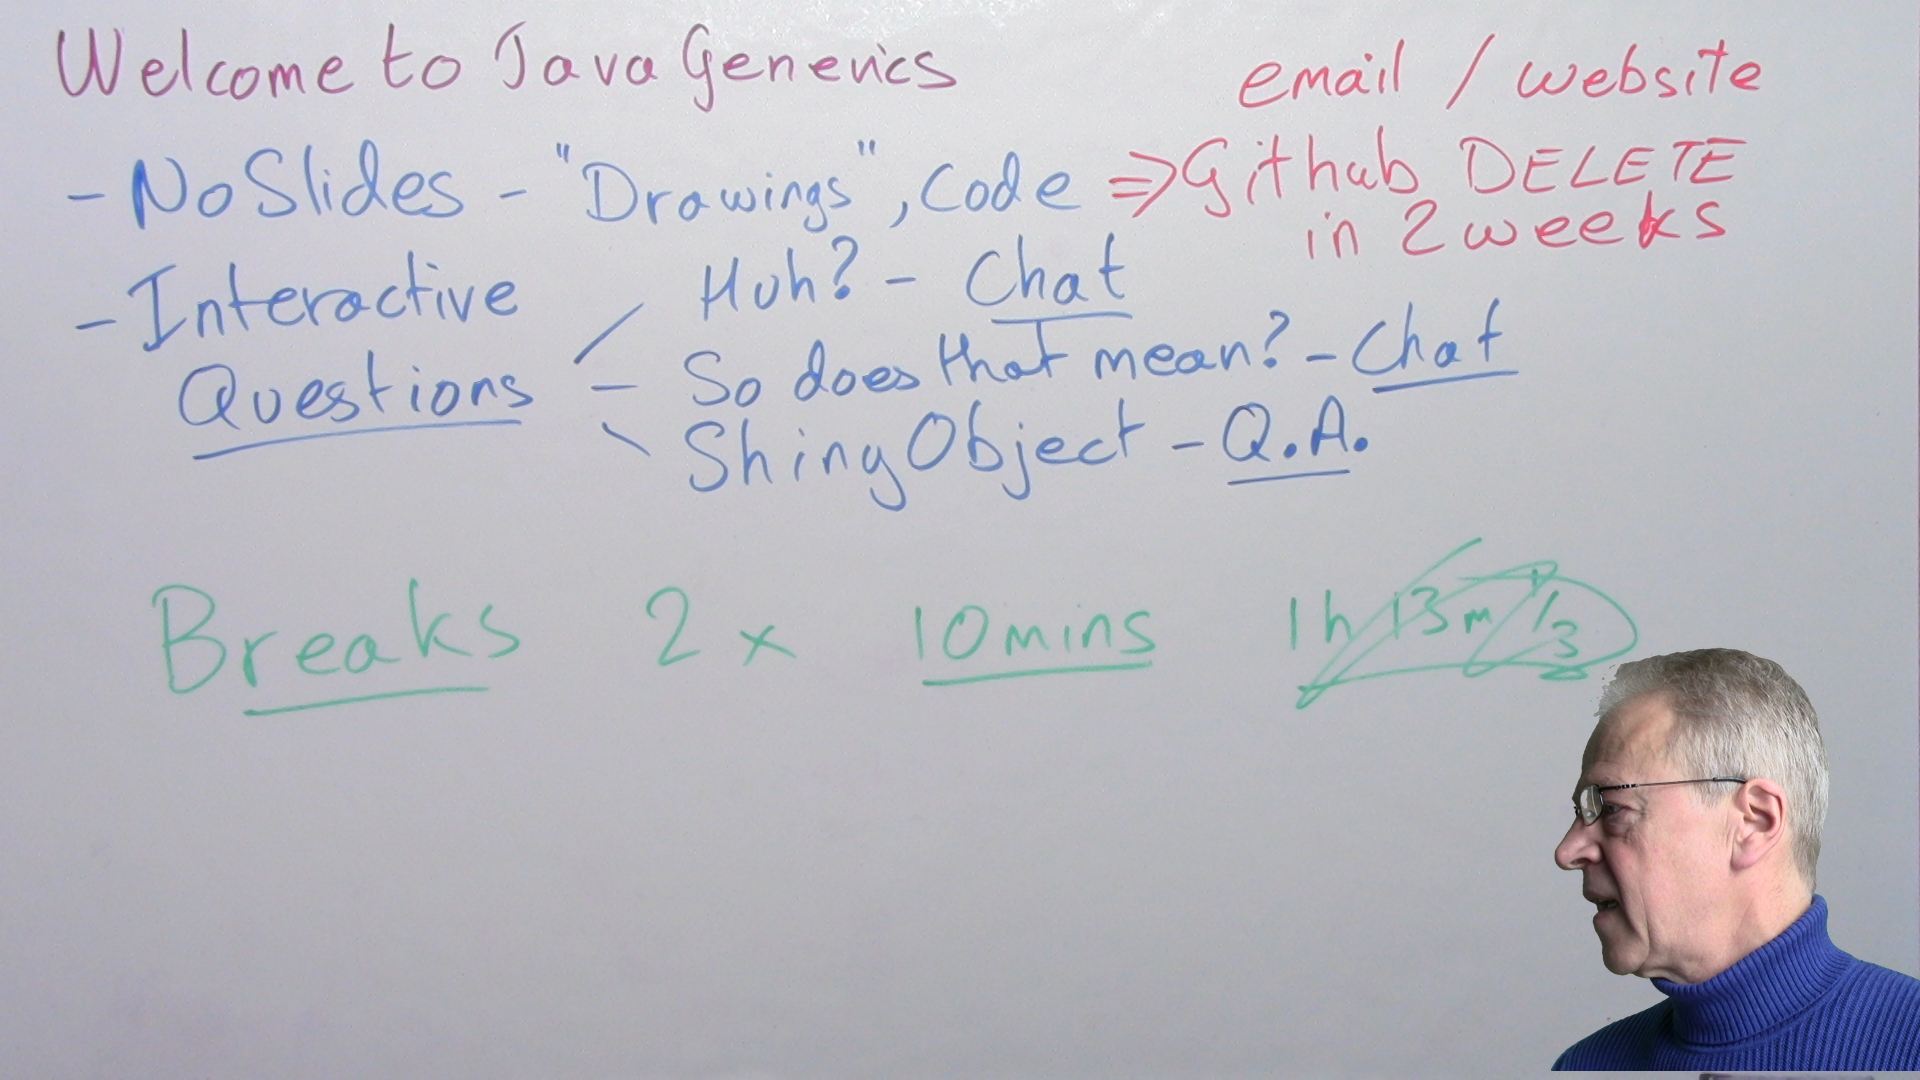 Welcome to Java Generics
email / website
- No Slides - "Drawings", Code => Github DELETE
in 2 weeks
- Interactive
Questions
Huh? - Chat
- So does that mean? - Chat
Shiny Object - Q.A.
Breaks 2 x 10 mins 1h 13m 1/3